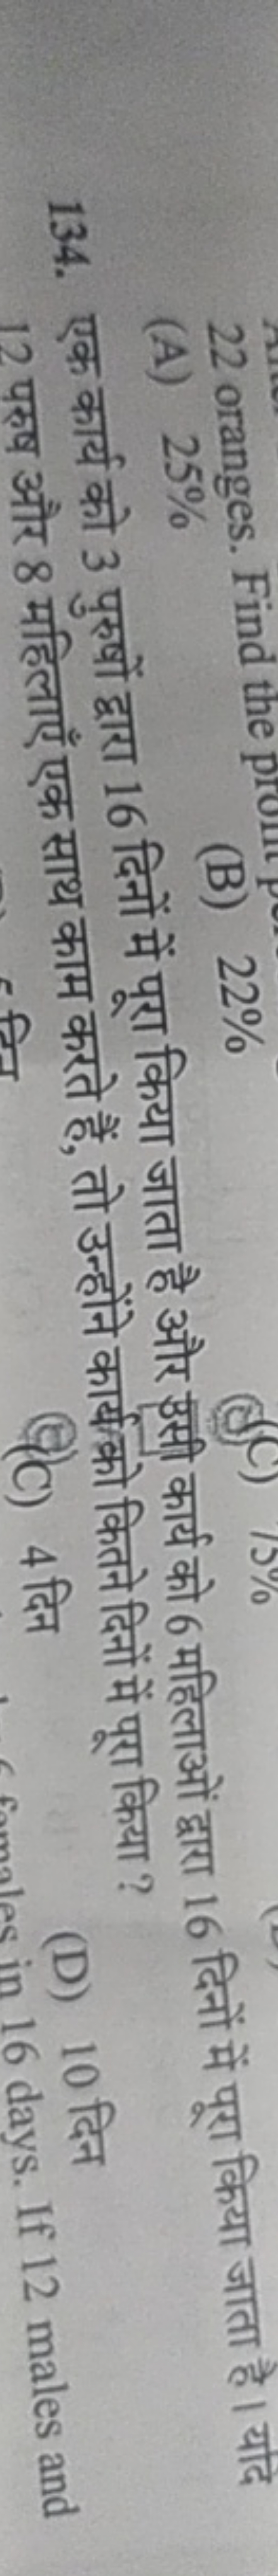 22 oranges. Find the
(A) 25% (B) 22% (C) 75%
134. एक कार्य को 3 पुरुषों द्वारा 16 दिनों में पूरा किया जाता है और उसी कार्य को 6 महिलाओं द्वारा 16 दिनों में पूरा किया जाता है। यदि
12 पुरुष और 8 महिलाएँ एक साथ काम करते हैं, तो उन्होंने कार्य को कितने दिनों में पूरा किया ?
(C) 4 दिन (D) 10 दिन
females in 16 days. If 12 males and